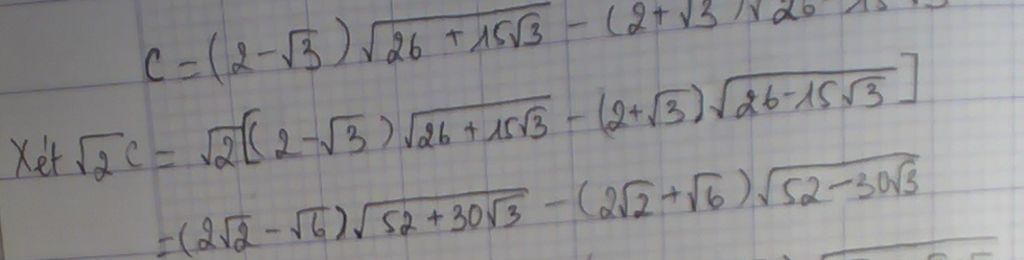 C = (2 - √3)√(26 + 15√3) - (2 + √3)√(26 - 15√3
Xét √2 C = √2[(2 - √3)√(26 + 15√3) - (2 + √3)√(26 - 15√3)]
= (2√2 - √6)√(52 + 30√3) - (2√2 + √6)√(52 - 30√3)